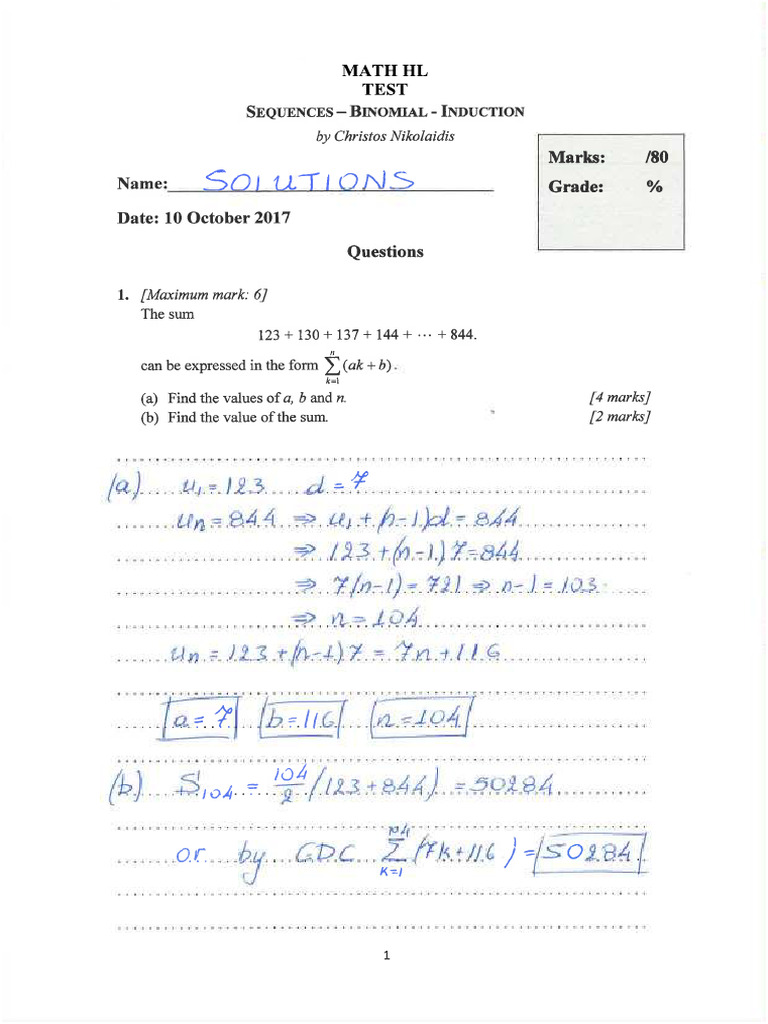 MATH HL
TEST
SEQUENCES – BINOMIAL - INDUCTION
by Christos Nikolaidis
Marks: /80
Name: SOLUTIONS
Grade: %
Date: 10 October 2017
Questions
1. [Maximum mark: 6]
The sum
123 + 130 + 137 + 144 + ⋯ + 844.
can be expressed in the form ∑_{k=1}^{n} (ak + b).
(a) Find the values of a, b and n. [4 marks]
(b) Find the value of the sum. [2 marks]
(a) u₁ = 123 d = 7
uₙ = 844 ⇒ u₁ + (n-1)d = 844
⇒ 123 + (n-1)7 = 844
⇒ 7(n-1) = 721 ⇒ n-1 = 103
⇒ n = 104
uₙ = 123 + (n-1)7 = 7n + 116
a = 7 b = 116 n = 104
(b) S₁₀₄ = 104/2 (123 + 844) = 50284
or by GDC ∑_{K=1}^{104} (7k + 116) = 50284
1